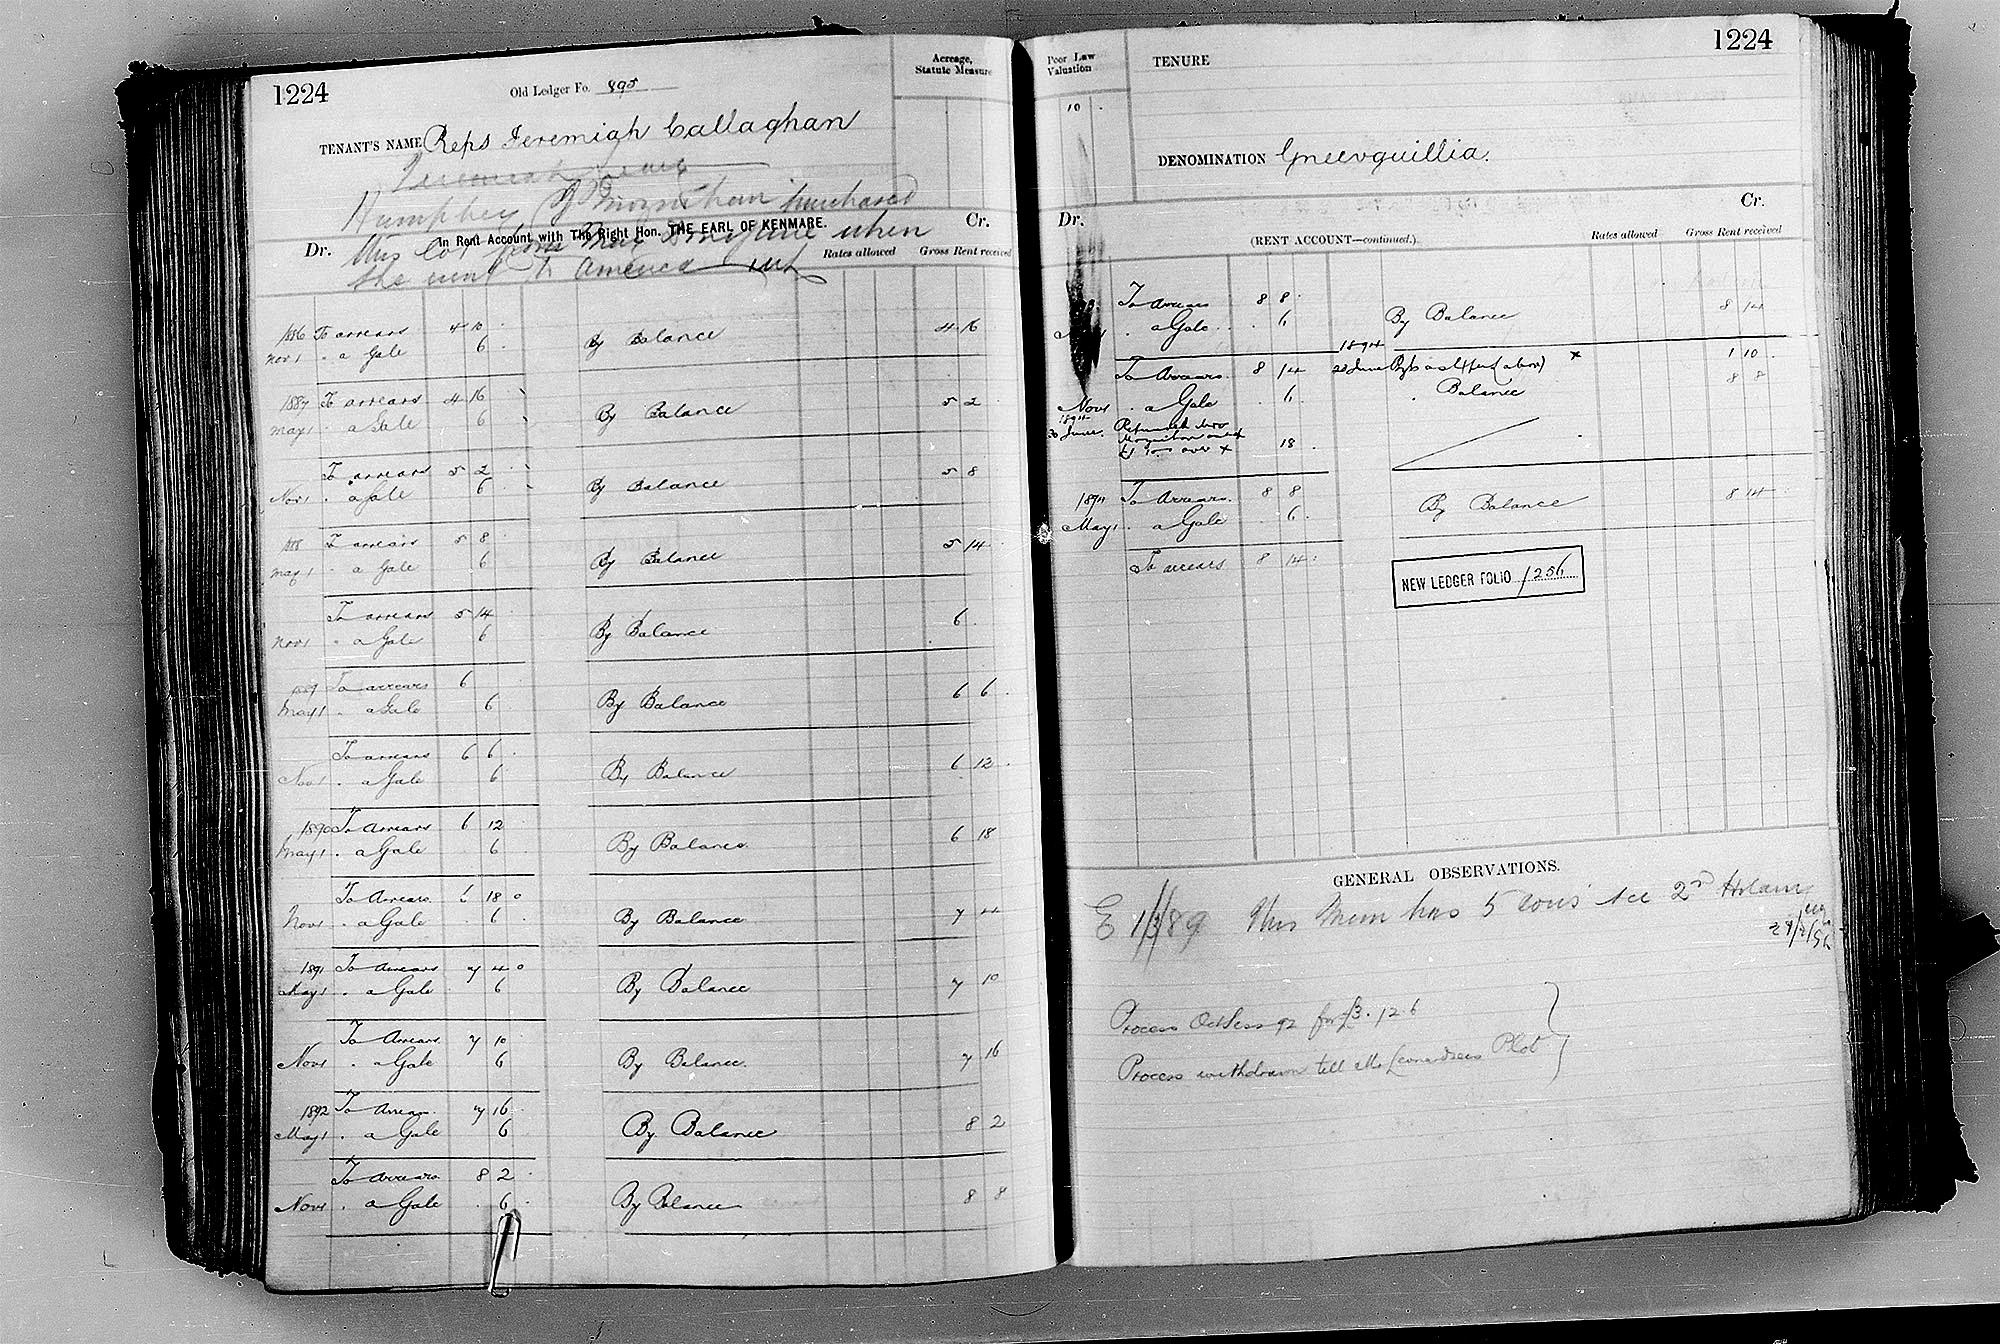 1224
Old Ledger Fo. 895
Acreage,
Statute Measure
TENANT'S NAME Reps Jeremiah Callaghan
Jeremiah
Humphrey Moynihan purchased
In Rent Account with The Right Hon. THE EARL OF KENMARE.
Dr. Cr.
this lot from when
she went to America
Rates allowed Gross Rent received
1886 To arrears 4 10
Nov 1 " a Gale 6 By Balance 4 16
1887 To arrears 4 16
May 1 " a Gale 6 By Balance 5 2
To arrears 5 2
Nov 1 " a Gale 6 By Balance 5 8
1888 To arrears 5 8
May 1 " a Gale 6 By Balance 5 14
To arrears 5 14
Nov 1 " a Gale 6 By Balance 6
1889 To arrears 6
May 1 " a Gale 6 By Balance 6 6
To arrears 6 6
Nov 1 " a Gale 6 By Balance 6 12
1890 To Arrears 6 12
May 1 " a Gale 6 By Balance 6 18
To Arrears 6 18 0
Nov 1 " a Gale 6 By Balance 7 4
1891 To Arrears 7 4 0
May 1 " a Gale 6 By Balance 7 10
To Arrears 7 10
Nov 1 " a Gale 6 By Balance 7 16
1892 To Arrears 7 16
May 1 " a Gale 6 By Balance 8 2
To Arrears 8 2
Nov 1 " a Gale 6 By Balance 8 8
1224
Poor Law
Valuation
TENURE
10
DENOMINATION Gneevguillia.
Dr. Cr.
(RENT ACCOUNT—continued.)
Rates allowed Gross Rent received
To Arrears 8 8
" a Gale 6 By Balance 8 14
1894
To Arrears 8 14 June By Cash x 1 10
Nov 1 " a Gale 6 " Balance 8 8
1894
June Moynihan
over x 18
1894 To Arrears 8 8
May 1 " a Gale 6 By Balance 8 14
To arrears 8 14
NEW LEDGER FOLIO 1256
GENERAL OBSERVATIONS.
E 1/3/89 This Mem has 5 see 2nd
Process Oct Sess 92 for £3.12.6
Process withdrawn till after Plot